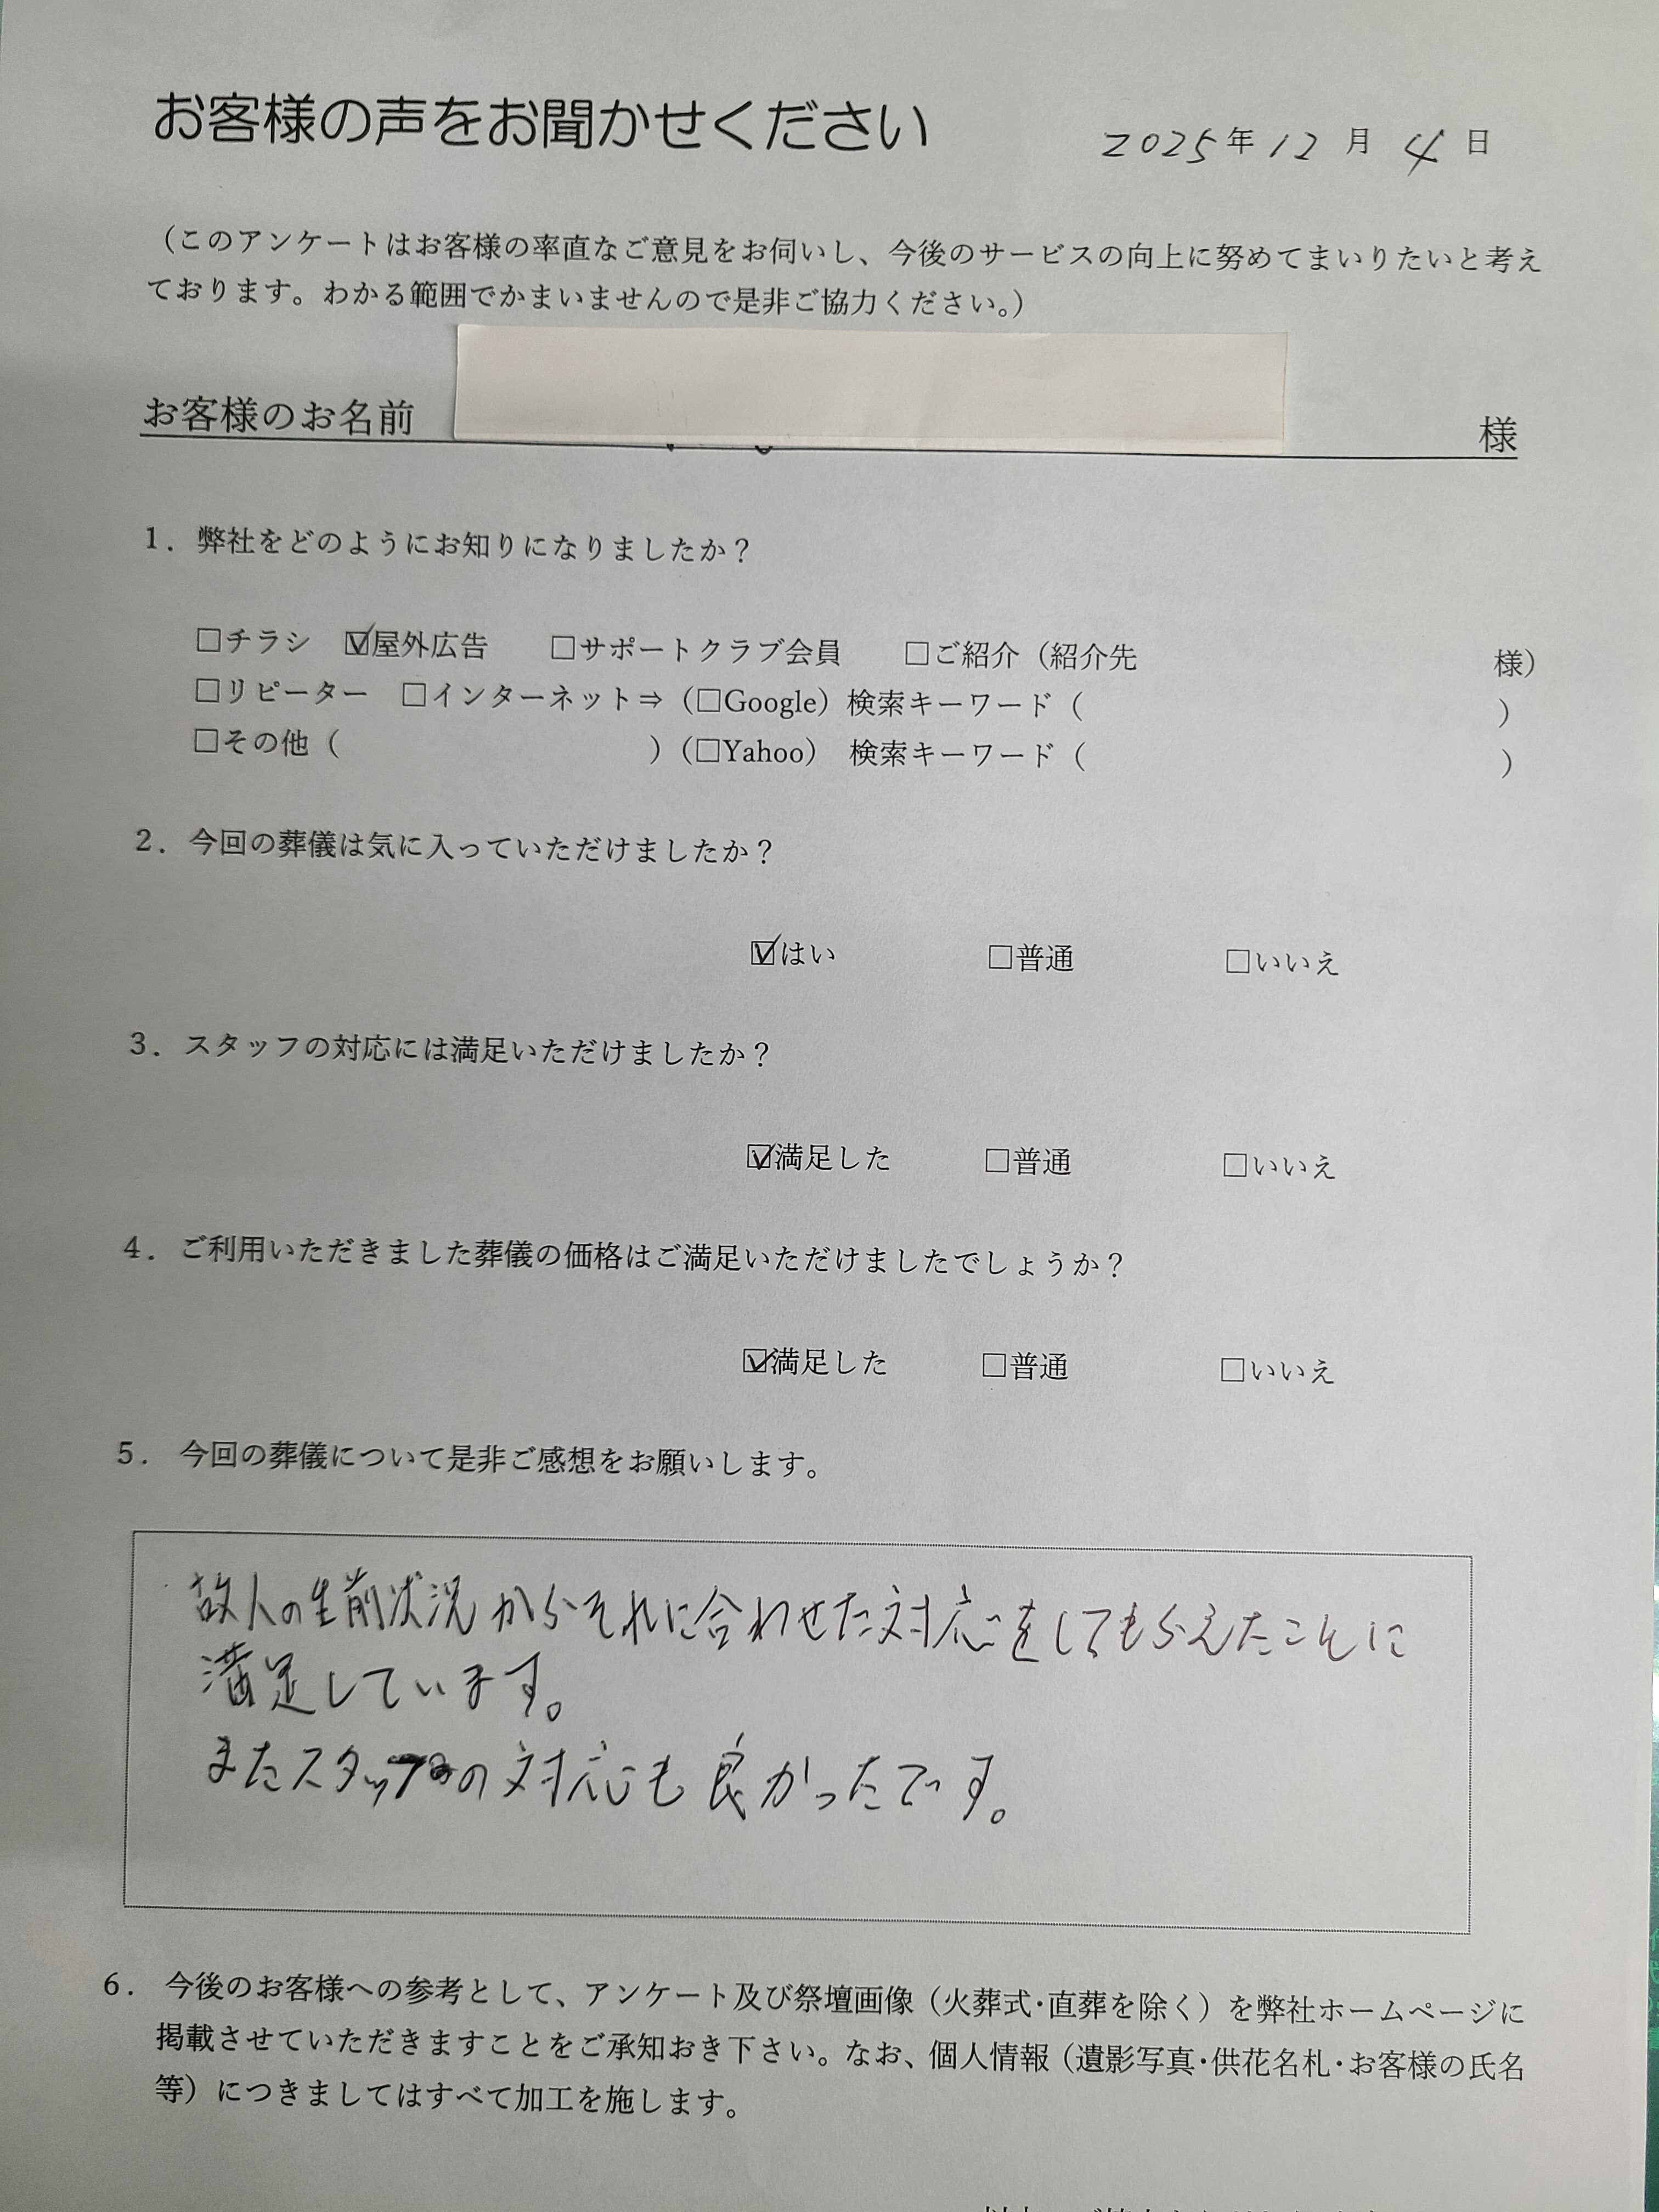 お客様の声をお聞かせください
2025年12月4日
（このアンケートはお客様の率直なご意見をお伺いし、今後のサービスの向上に努めてまいりたいと考え
ております。わかる範囲でかまいませんので是非ご協力ください。）
お客様のお名前 様
1．弊社をどのようにお知りになりましたか？
□チラシ ☑屋外広告 □サポートクラブ会員 □ご紹介（紹介先 様）
□リピーター □インターネット⇒（□Google）検索キーワード（ ）
□その他（ ）（□Yahoo） 検索キーワード（ ）
2．今回の葬儀は気に入っていただけましたか？
☑はい □普通 □いいえ
3．スタッフの対応には満足いただけましたか？
☑満足した □普通 □いいえ
4．ご利用いただきました葬儀の価格はご満足いただけましたでしょうか？
☑満足した □普通 □いいえ
5． 今回の葬儀について是非ご感想をお願いします。
故人の生前状況からそれに合わせた対応をしてもらえたことに
満足しています。
またスタッフの対応も良かったです。
6． 今後のお客様への参考として、アンケート及び祭壇画像（火葬式･直葬を除く）を弊社ホームページに
掲載させていただきますことをご承知おき下さい。なお、個人情報（遺影写真･供花名札･お客様の氏名
等）につきましてはすべて加工を施します。